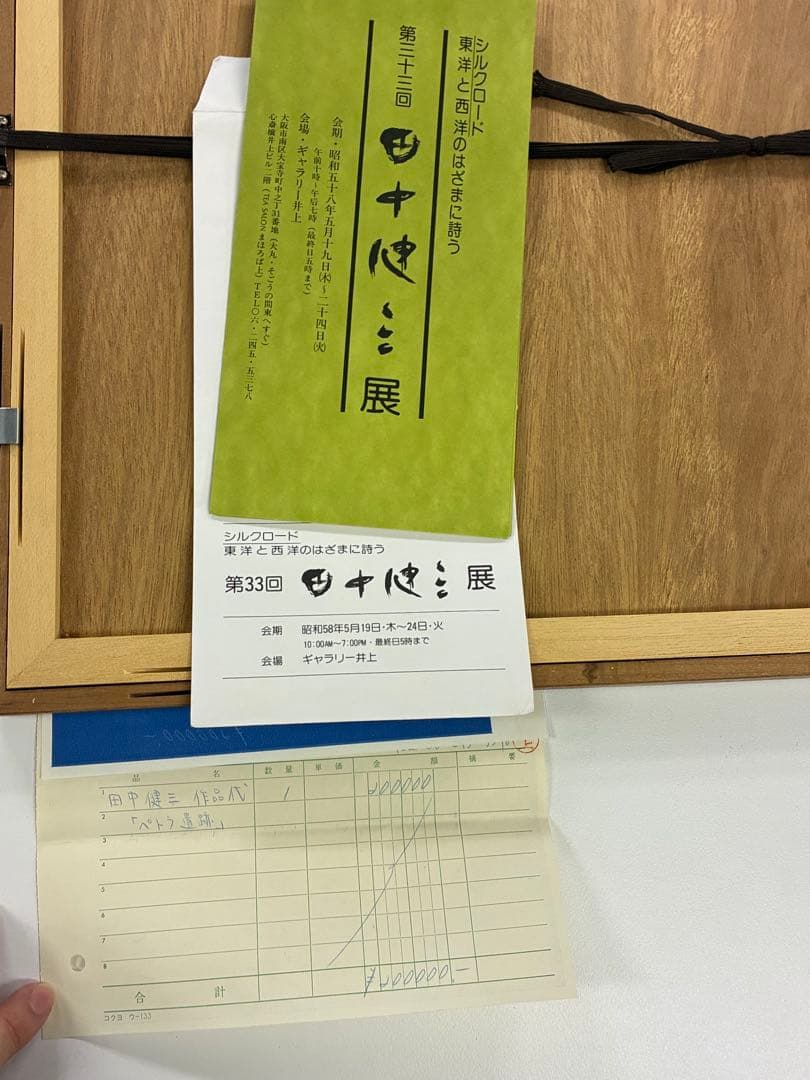 シルクロード
東洋と西洋のはざまに詩う
第三十三回
田中健三展
会期・昭和五十八年五月十九日(木)〜二十四日(火)
午前十時〜午后七時(最終日五時まで)
会場・ギャラリー井上
大阪市南区大宝寺町中之丁31番地(大丸・そごうの間東へすぐ)
心斎橋井上ビル二階(TEA SALONまほろば上)TEL〇六・二四五・五三七八
シルクロード
東洋と西洋のはざまに詩う
第33回 田中健三展
会期 昭和58年5月19日・木〜24日・火
10:00AM〜7:00PM・最終日5時まで
会場 ギャラリー井上
品名 数量 単価 金額 摘要
1 田中健三 作品代 1 200000
2 「ペトラ遺跡」
3
4
5
6
7
8
合計 ¥200000-
コクヨ ウ-133